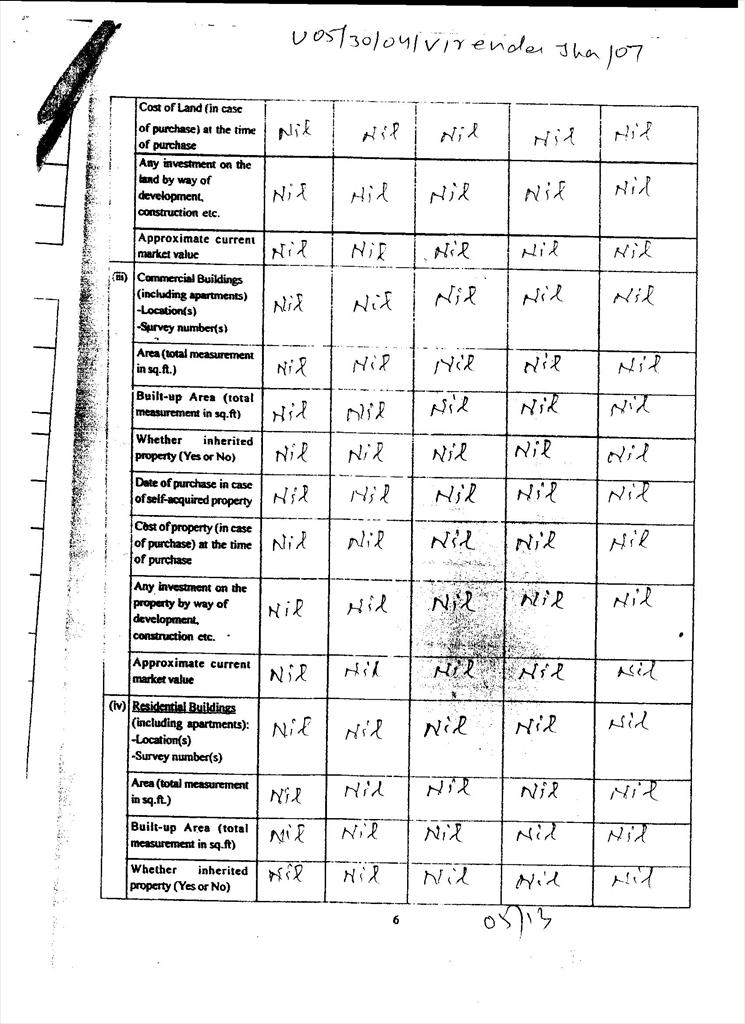 U05/30/04/Virender Jha/07
Cost of Land (in case
of purchase) at the time
of purchase
Nil Nil Nil Nil Nil
Any investment on the
land by way of
development,
construction etc.
Nil Nil Nil Nil Nil
Approximate current
market value
Nil Nil Nil Nil Nil
(iii) Commercial Buildings
(including apartments)
-Location(s)
-Survey number(s)
Nil Nil Nil Nil Nil
Area (total measurement
in sq.ft.)
Nil Nil Nil Nil Nil
Built-up Area (total
measurement in sq.ft)
Nil Nil Nil Nil Nil
Whether inherited
property (Yes or No)
Nil Nil Nil Nil Nil
Date of purchase in case
of self-acquired property
Nil Nil Nil Nil Nil
Cost of property (in case
of purchase) at the time
of purchase
Nil Nil Nil Nil Nil
Any investment on the
property by way of
development,
construction etc.
Nil Nil Nil Nil Nil
Approximate current
market value
Nil Nil Nil Nil Nil
(iv) Residential Buildings
(including apartments):
-Location(s)
-Survey number(s)
Nil Nil Nil Nil Nil
Area (total measurement
in sq.ft.)
Nil Nil Nil Nil Nil
Built-up Area (total
measurement in sq.ft)
Nil Nil Nil Nil Nil
Whether inherited
property (Yes or No)
Nil Nil Nil Nil Nil
6
05/13